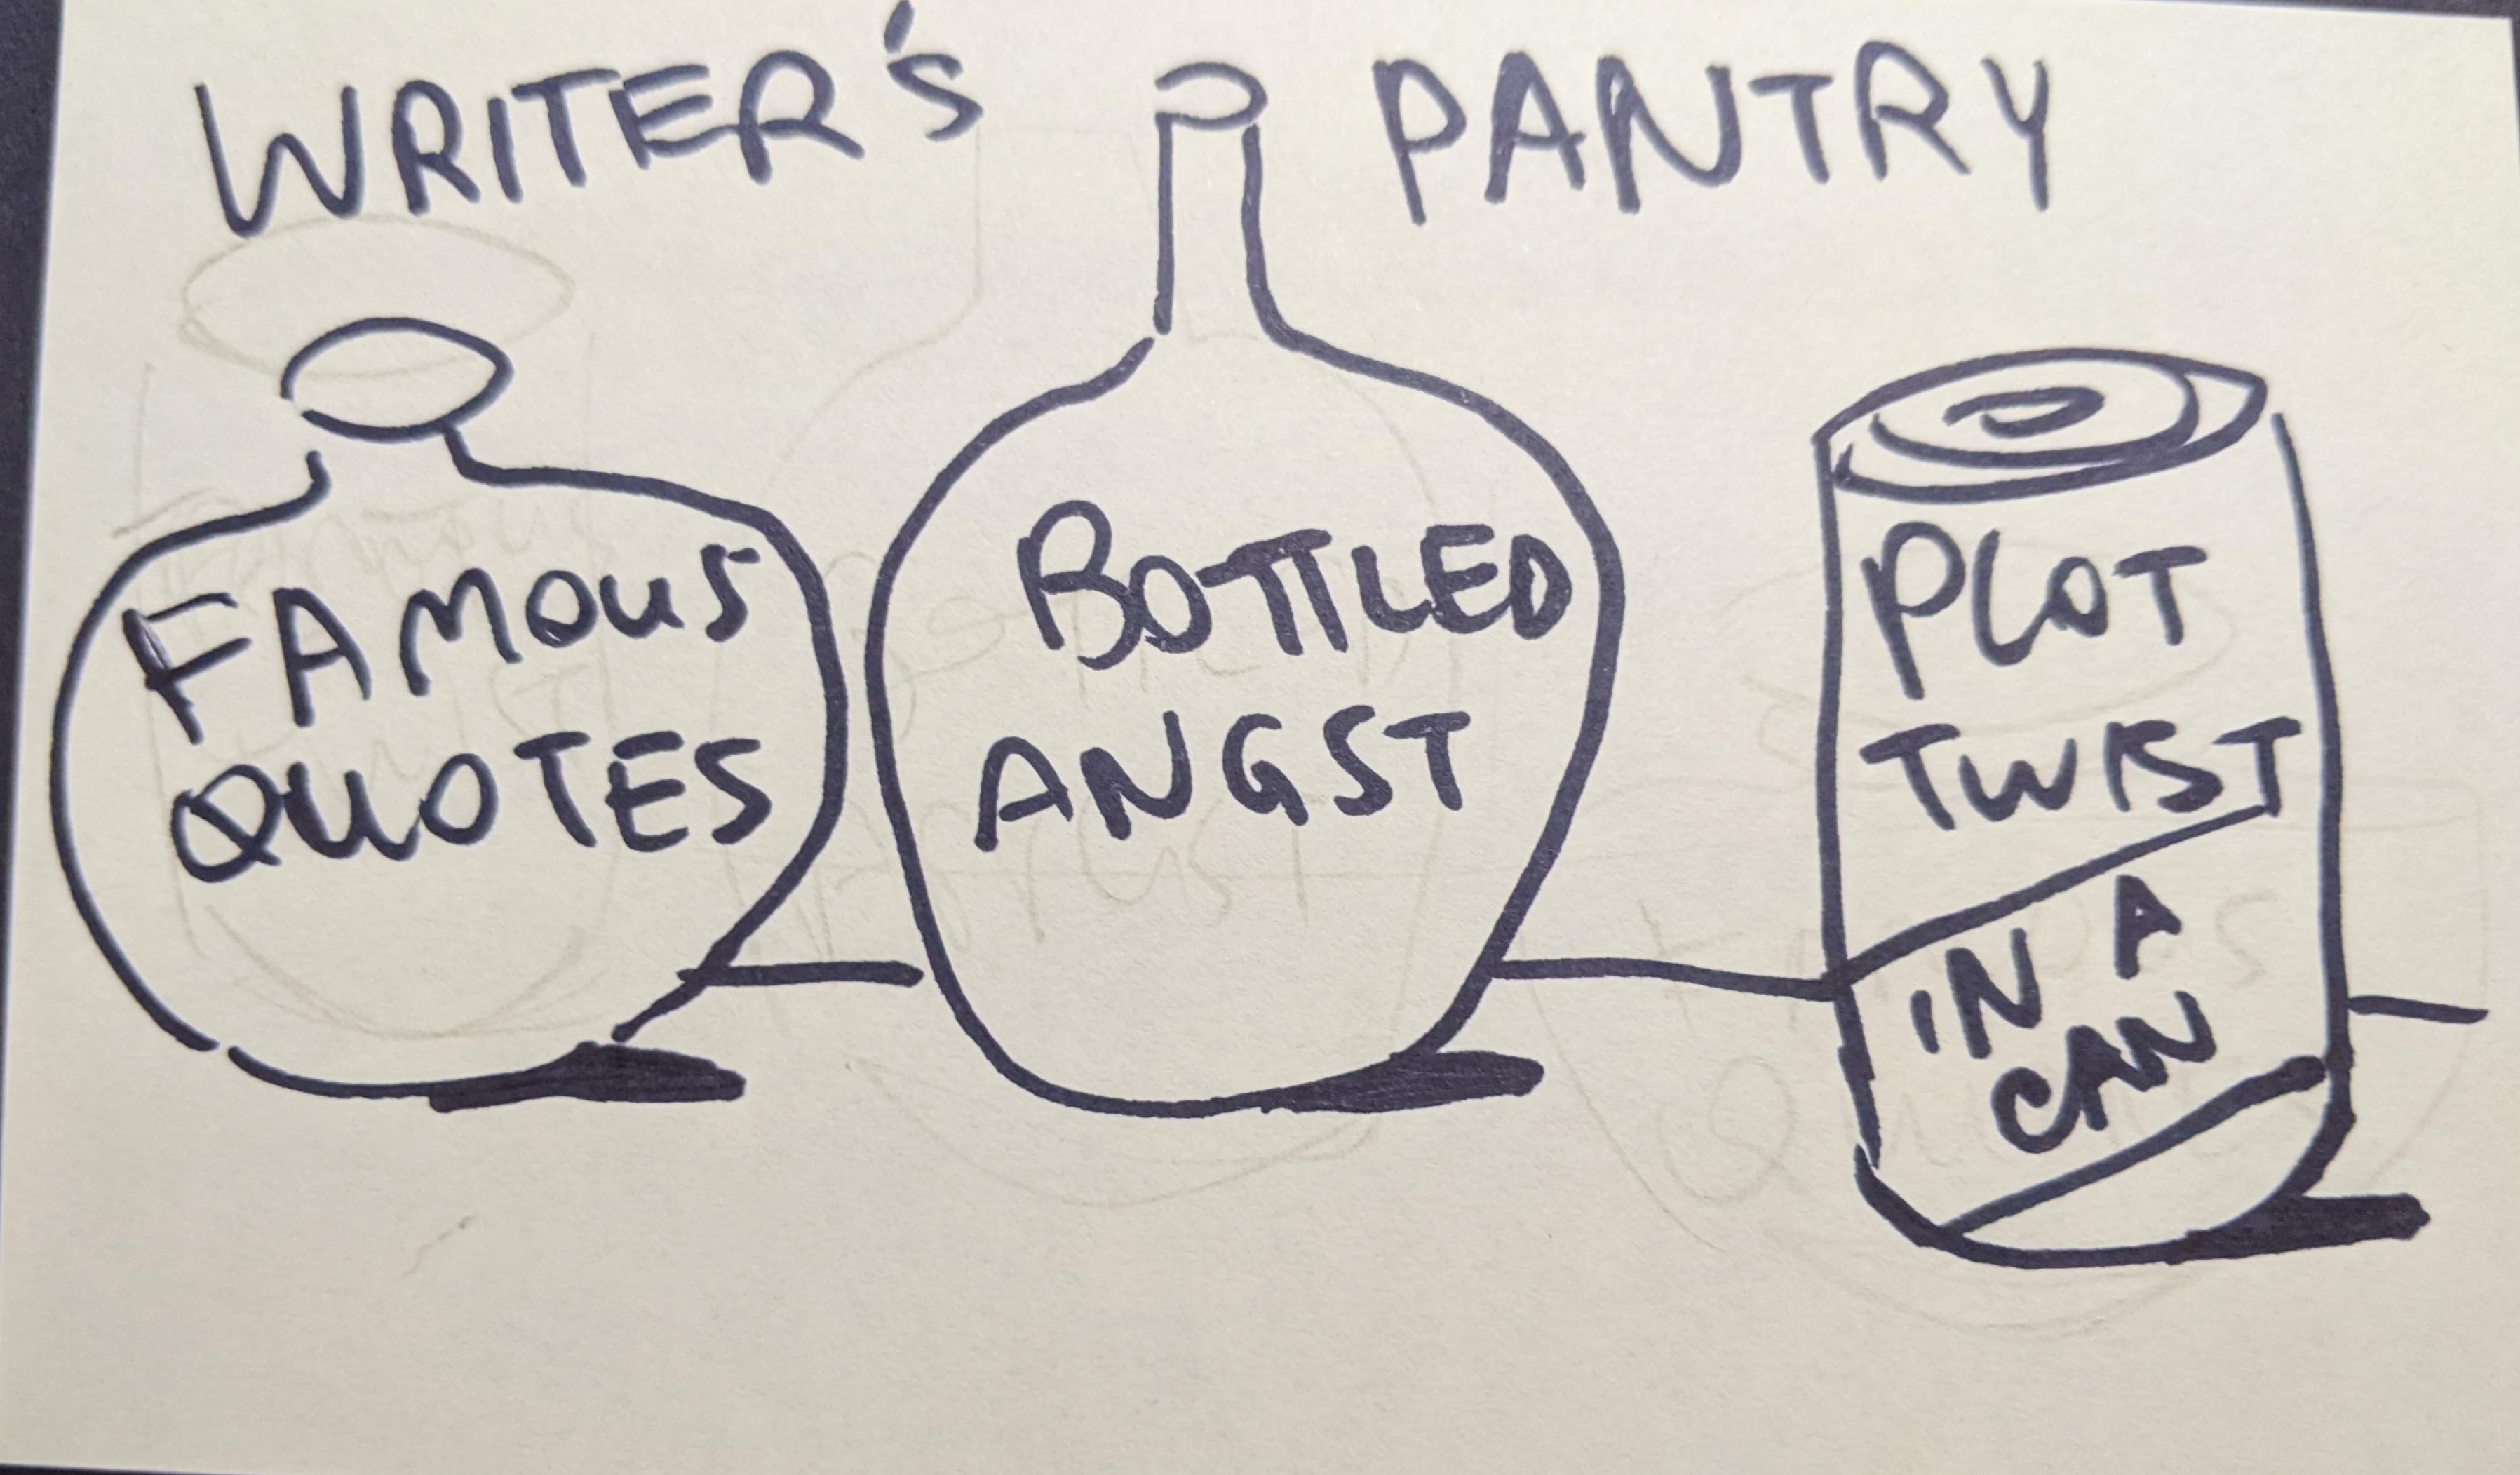 WRITER'S PANTRY
FAMOUS
QUOTES
BOTTLED
ANGST
PLOT
TWIST
IN A
CAN